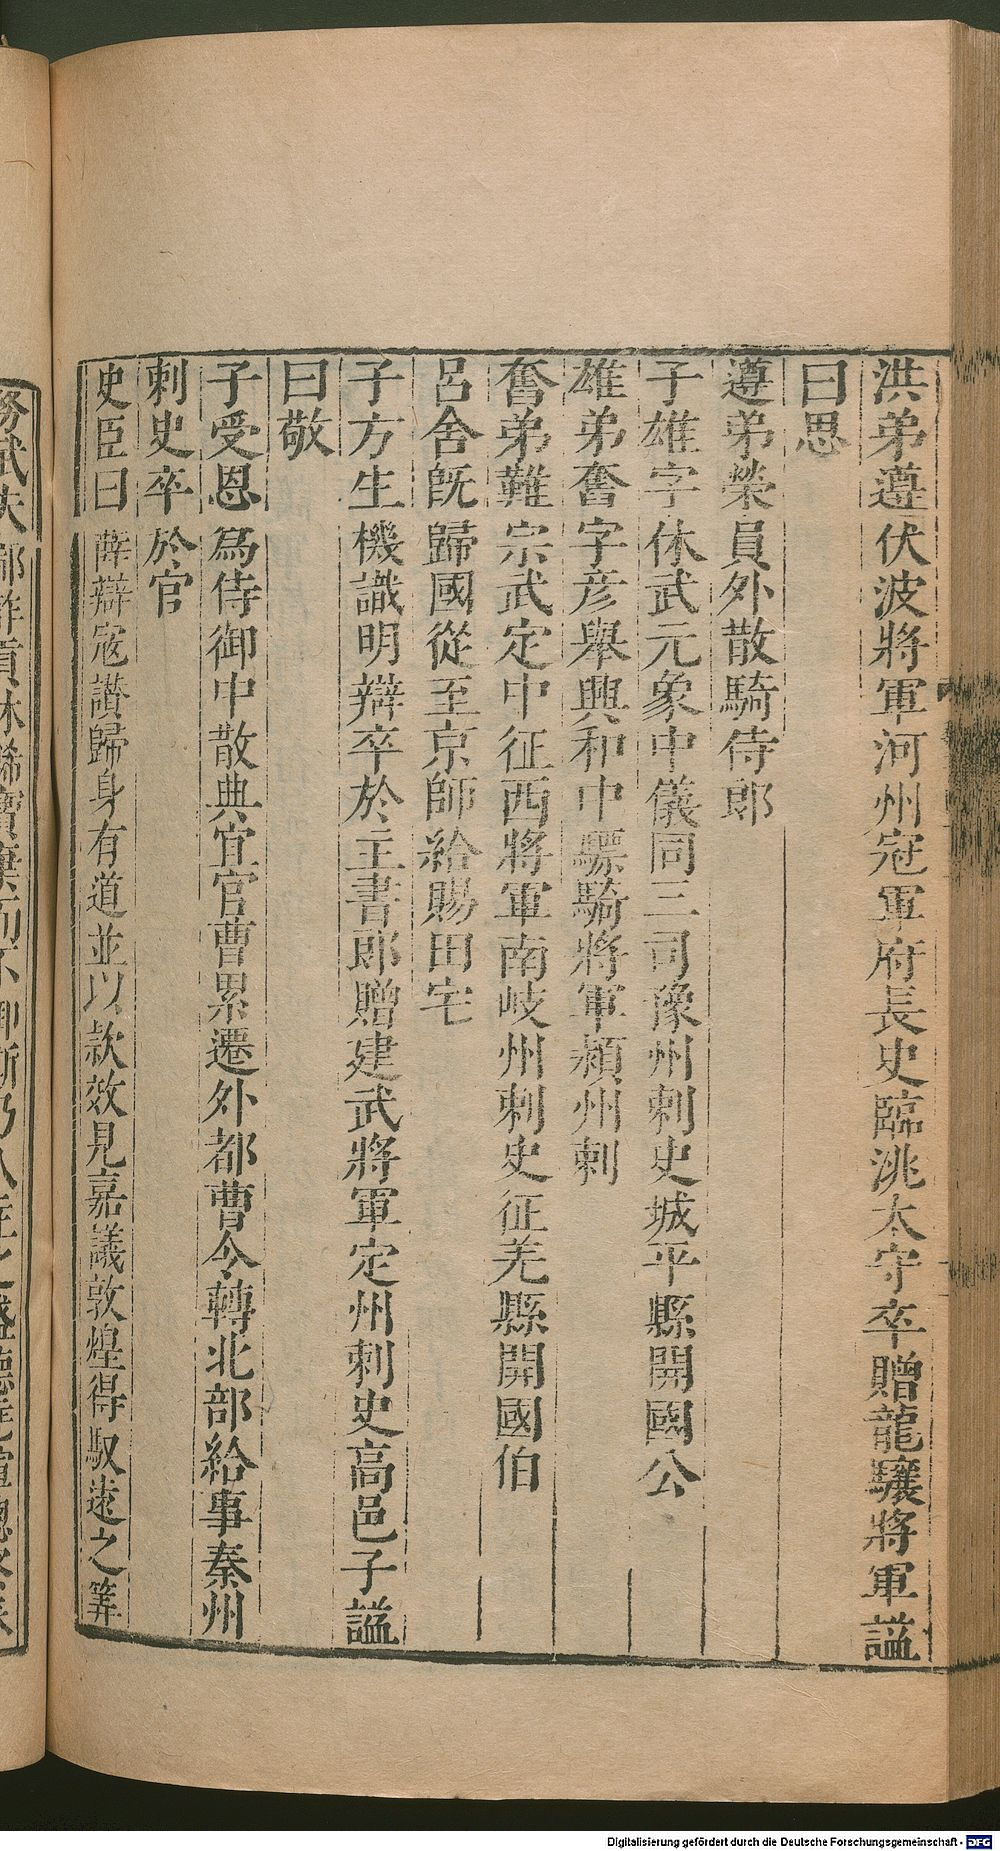 洪弟遵伏波將軍河州冠軍府長史臨洮太守卒贈龍驤將軍謚
曰思
遵弟榮員外散騎侍郎
子雄字休武元象中儀同三司豫州刺史城平縣開國公
雄弟奮字彥舉興和中驃騎將軍潁州刺
奮弟難宗武定中征西將軍南岐州刺史征羌縣開國伯
呂舍旣歸國從至京師給賜田宅
子方生機識明辯卒於主書郎贈建武將軍定州刺史高邑子謚
曰敬
子受恩爲侍御中散典宜官曹累遷外都曹令轉北部給事秦州
刺史卒於官
史臣曰薛辯寇讃歸身有道並以款效見嘉議敦煌得馭遠之筭
Digitalisierung gefördert durch die Deutsche Forschungsgemeinschaft - DFG